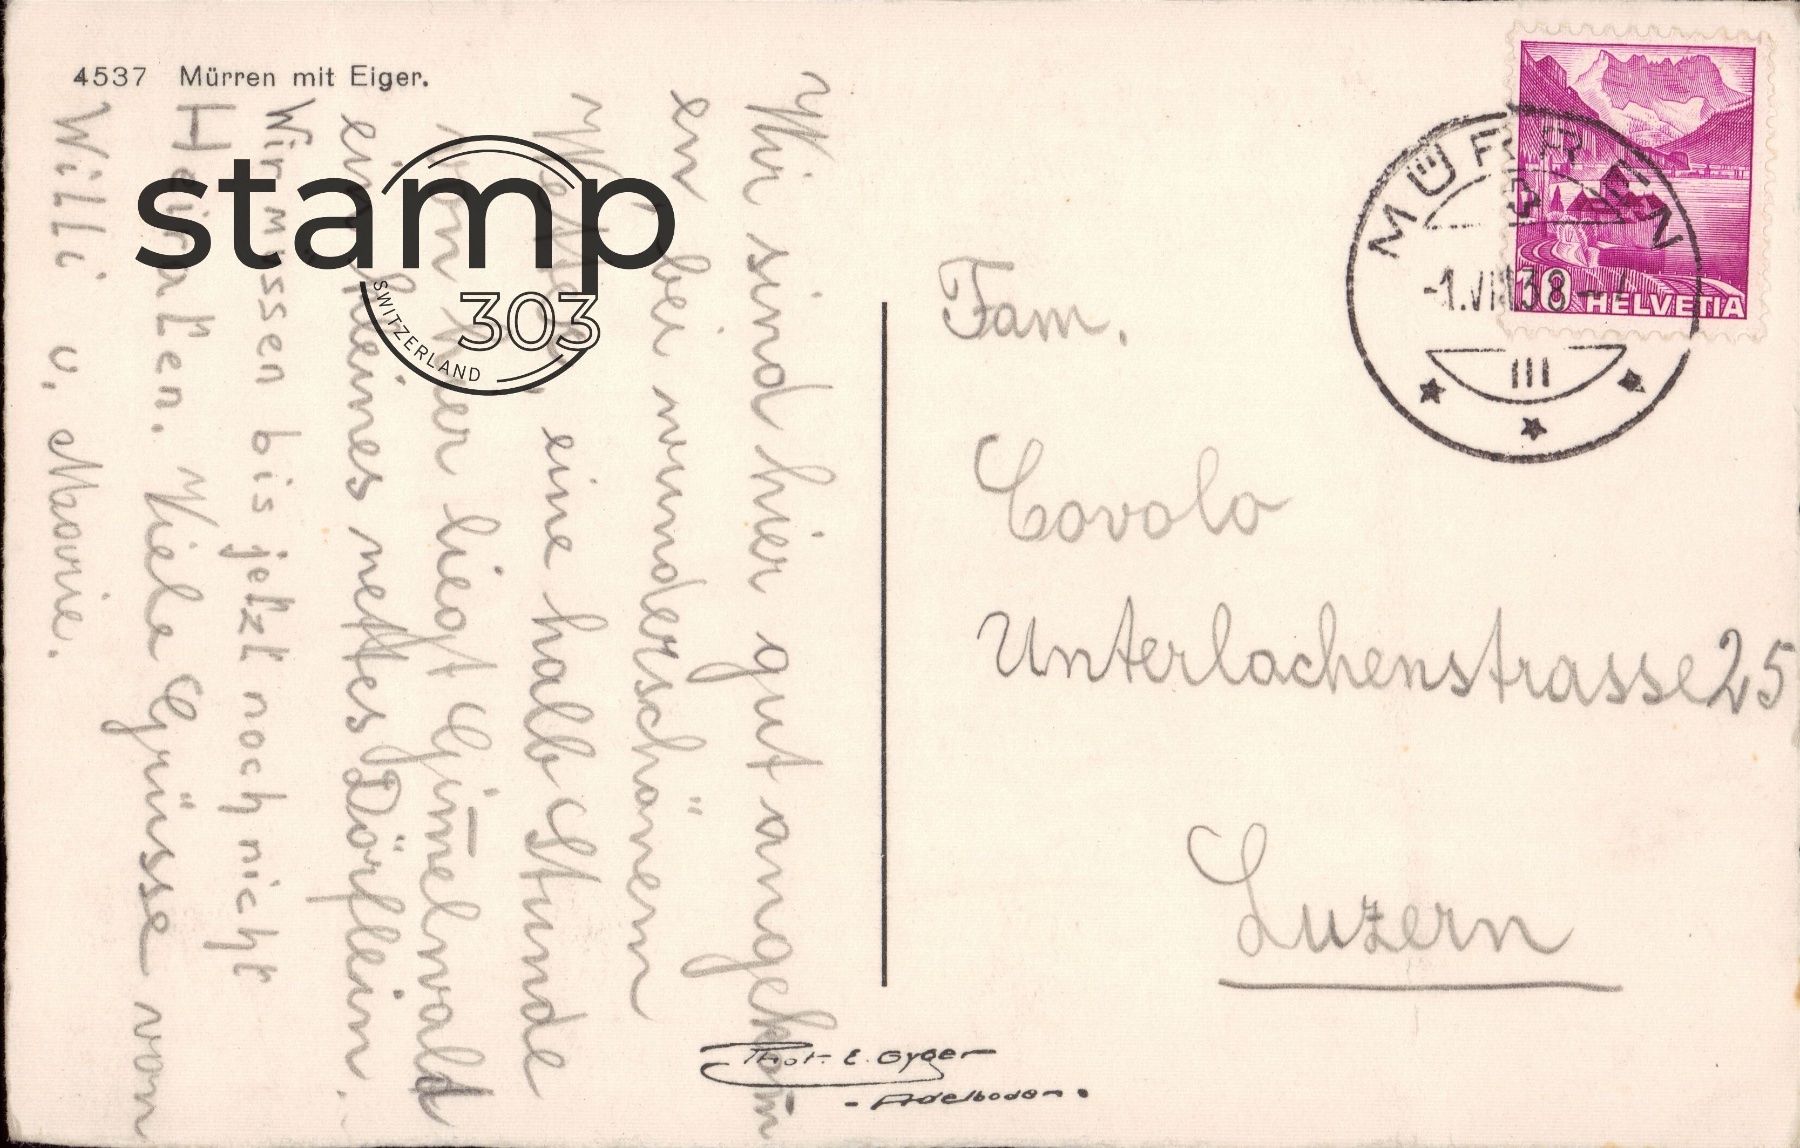 4537 Mürren mit Eiger.
Wir sind hier gut angekom̅
en bei wunderschönem
Wetter, eine halb Stunde
von hier liegt Gim̅elwald
ein kleines nettes Dörflein.
Wir müssen bis jetzt noch nicht
Heiraten. Viele Grüsse von
Willi u. Marie.
stamp
303
SWITZERLAND
MÜRREN
-1.VIII38--7
III
10 HELVETIA
Fam.
Covolo
Unterlachenstrasse 25
Luzern
Phot. E. Gyger
- Adelboden.